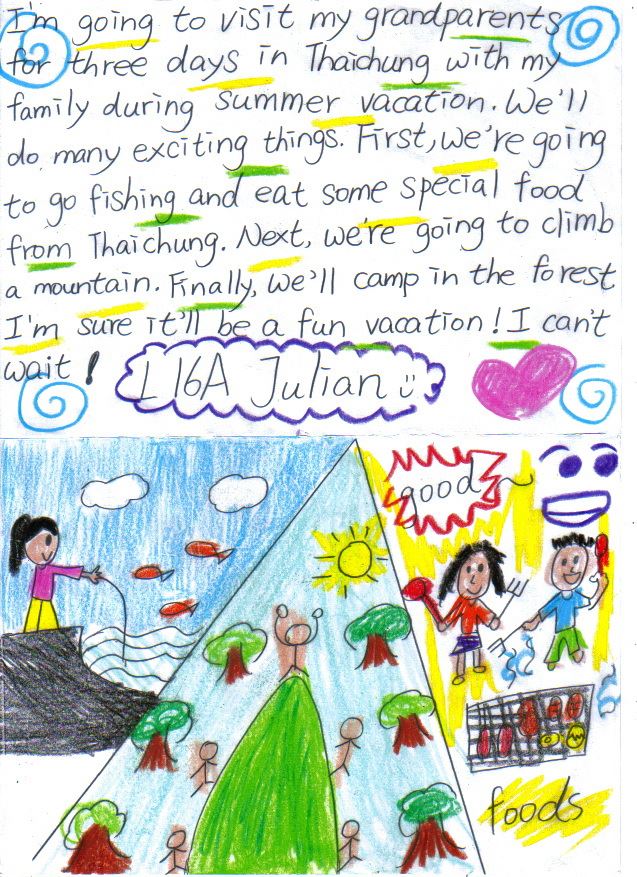 I'm going to visit my grandparents
for three days in Thaichung with my
family during summer vacation. We'll
do many exciting things. First, we're going
to go fishing and eat some special food
from Thaichung. Next, we're going to climb
a mountain. Finally, we'll camp in the forest
I'm sure it'll be a fun vacation! I can't
wait!
L16A Julian
good~
foods